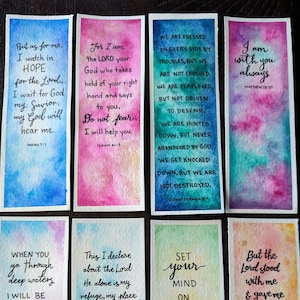 But as for me,
I watch in
HOPE
for the Lord,
I wait for God
my Savior;
my God will
hear me.
MICAH 7:7
For I am
the LORD your
God who takes
hold of your right
hand and says
to you,
Do not fear;
I will help you.
ISAIAH 41:13
WE ARE PRESSED
ON EVERY SIDE BY
TROUBLES, BUT WE
ARE NOT CRUSHED.
WE ARE PERPLEXED,
BUT NOT DRIVEN
TO DESPAIR.
WE ARE HUNTED
DOWN, BUT NEVER
ABANDONED BY GOD.
WE GET KNOCKED
DOWN, BUT WE ARE
NOT DESTROYED.
I am
with you
always
MATTHEW 28:20
WHEN YOU
go through
deep waters,
I WILL BE
This I declare
about the Lord
He alone is my
refuge, my place
SET
your
MIND
ON
But the
Lord stood
with me
& gave me